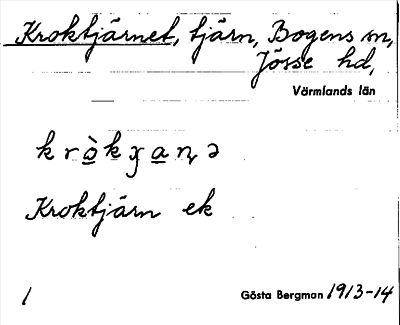 Kroktjärnet, tjärn, Bogens sn,
Jösse hd,
Värmlands län
Kroktjärn ek
1
Gösta Bergman 1913-14